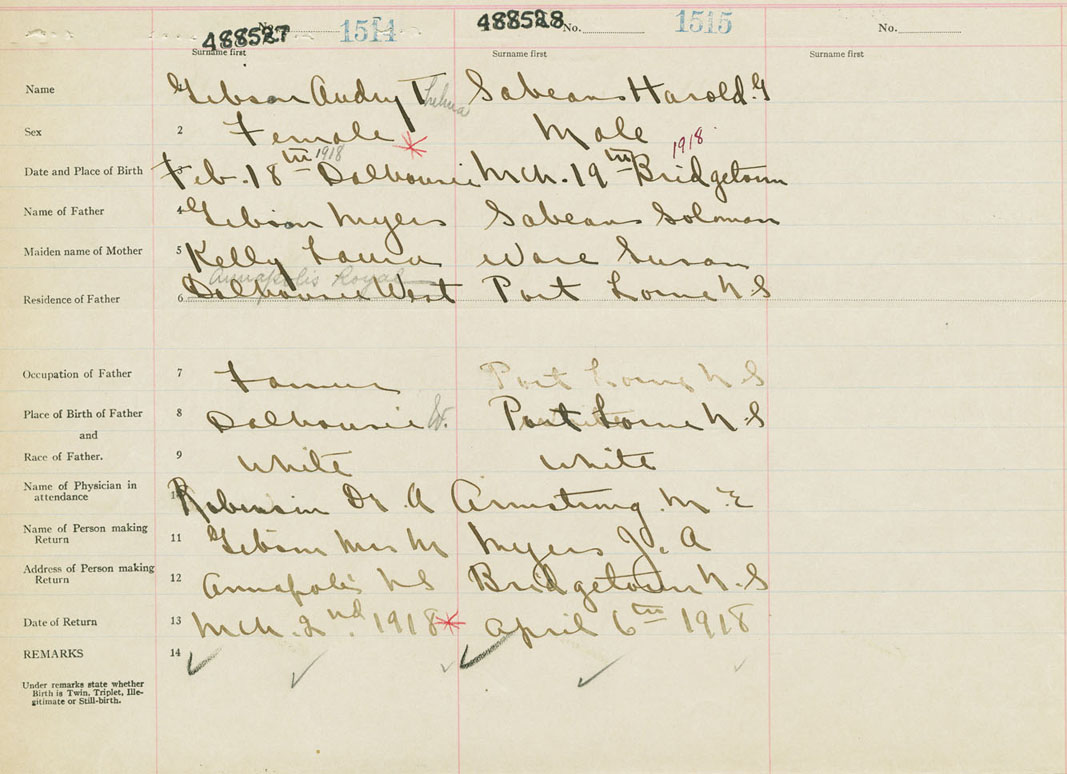 488527 No. 1514 488528 No. 1515 No.
Surname first Surname first Surname first
Name Gibson Audry T Thelma Sabeans Harold. G
Sex 2 Female Male
Date and Place of Birth 3 Feb. 18th 1918 Dalhousie Mch. 19th 1918 Bridgetown
Name of Father 4 Gibson Myers Sabeans Soloman
Maiden name of Mother 5 Kelly Laura Ware Susan
Annapolis Royal
Residence of Father 6 Dalhousie West Port Lorne N.S
Occupation of Father 7 Farmer Port Lorne N S
Place of Birth of Father 8 Dalhousie W. Port Lorne N S
and
Race of Father. 9 White White
Name of Physician in
attendance 10 Robinson Dr. A Armstrong. M. E
Name of Person making
Return 11 Gibson Mrs M Myers J. A
Address of Person making
Return 12 Annapolis NS Bridgetown N.S
Date of Return 13 Mch. 2nd. 1918 April 6th 1918
REMARKS 14
Under remarks state whether
Birth is Twin, Triplet, Ille-
gitimate or Still-birth.